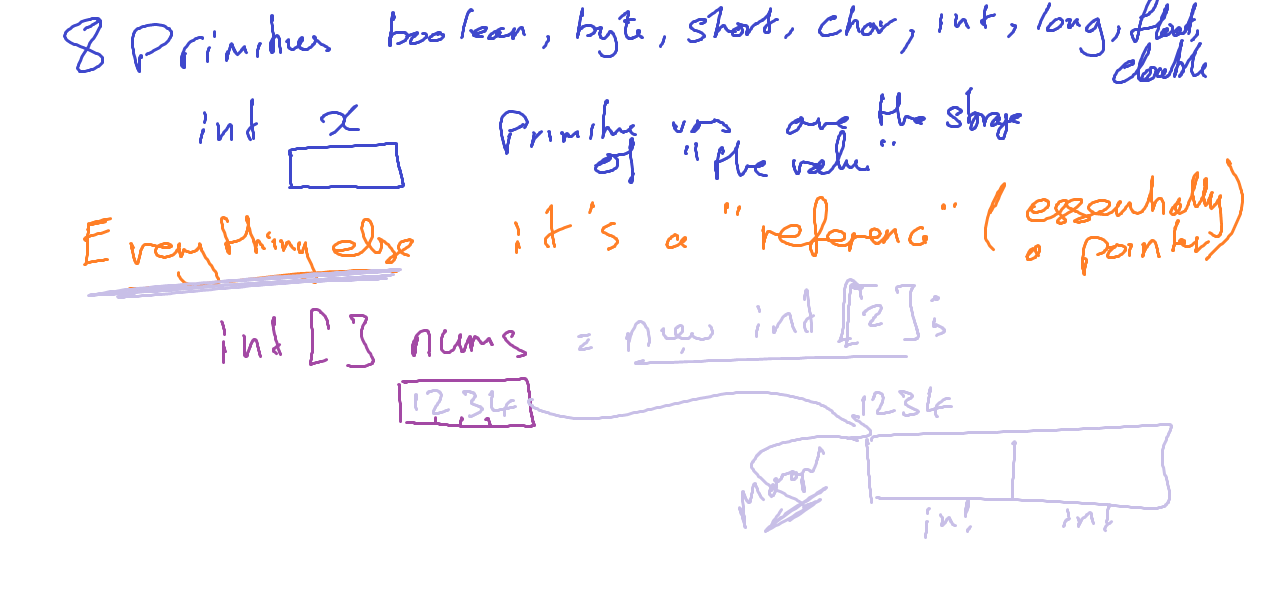 8 Primitives boolean, byte, short, char, int, long, float,
double
int x Primitive vars are the storage
of "the value"
Everything else it's a "reference" (essentially
a pointer)
int [ ] nums = new int [2];
1234 1234
int int